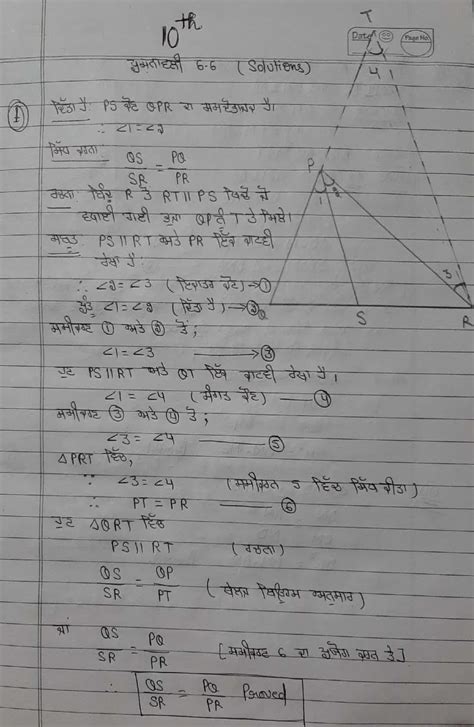 10th
T
Date
Page No.
ਪ੍ਰਸ਼ਨਾਵਲੀ 6.6 (Solutions)
4
① ਦਿੱਤਾ ਹੈ: PS ਕੋਣ QPR ਦਾ ਸਮਦੋਭਾਜਕ ਹੈ।
∴ ∠1=∠2
ਸਿੱਧ ਕਰਨਾ: QS/SR = PQ/PR
P
1 2
ਰਚਨਾ: ਬਿੰਦੂ R ਤੋਂ RT||PS ਖਿੱਚੋ ਜੋ
ਵਧਾਈ ਗਈ ਭੁਜਾ QP ਨੂੰ T ਤੇ ਮਿਲੇ।
ਸਬੂਤ: PS||RT ਅਤੇ PR ਇੱਕ ਕਾਟਵੀਂ
ਰੇਖਾ ਹੈ:
3
∴ ∠2=∠3 (ਇਕਾਂਤਰ ਕੋਣ) →①
ਪਰੰਤੂ ∠1=∠2 (ਦਿੱਤਾ ਹੈ) →②
Q S R
ਸਮੀਕਰਣ ① ਅਤੇ ② ਤੋਂ;
∠1=∠3 →③
ਹੁਣ PS||RT ਅਤੇ QT ਇੱਕ ਕਾਟਵੀਂ ਰੇਖਾ ਹੈ।
∠1 = ∠4 (ਸੰਗਤ ਕੋਣ) — ④
ਸਮੀਕਰਣ ③ ਅਤੇ ④ ਤੋਂ;
∠3 = ∠4 — ⑤
△PRT ਵਿੱਚ,
∴ ∠3=∠4 (ਸਮੀਕਰਣ 5 ਵਿੱਚ ਸਿੱਧ ਕੀਤਾ)
∴ PT = PR — ⑥
ਹੁਣ △QRT ਵਿੱਚ
PS||RT (ਰਚਨਾ)
QS/SR = QP/PT (ਥੇਲਜ਼ ਥਿਊਰਮ ਅਨੁਸਾਰ)
ਜਾਂ QS/SR = PQ/PR [ਸਮੀਕਰਣ 6 ਦਾ ਪ੍ਰਯੋਗ ਕਰਨ ਤੇ]
∴ QS/SR = PQ/PR Proved